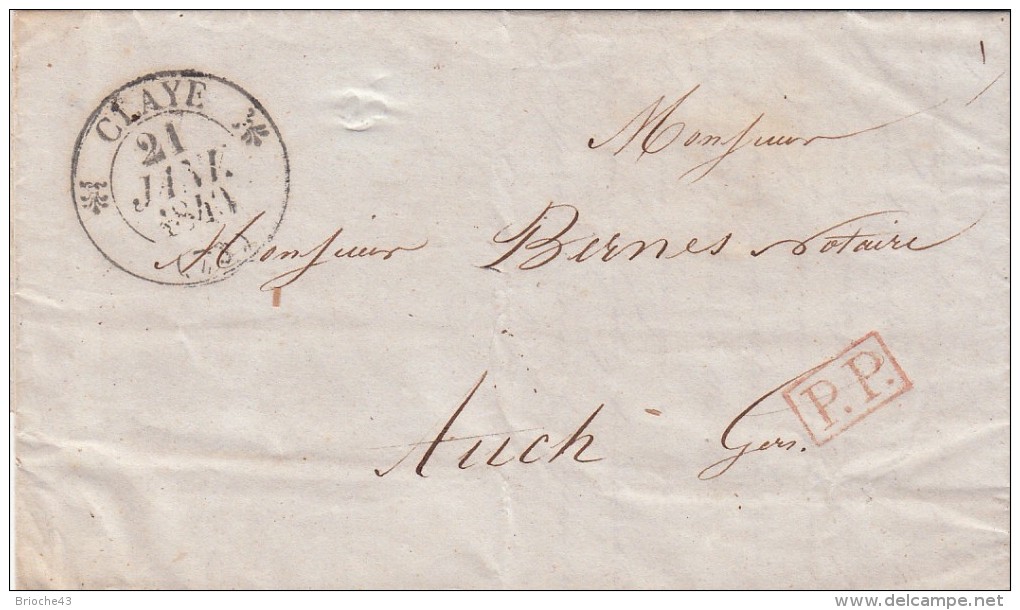 CLAYE
21
JANV.
Monsieur
Monsieur Bernes Notaire
P.P.
Auch Gers.
Brioche43
www.delcampe.net